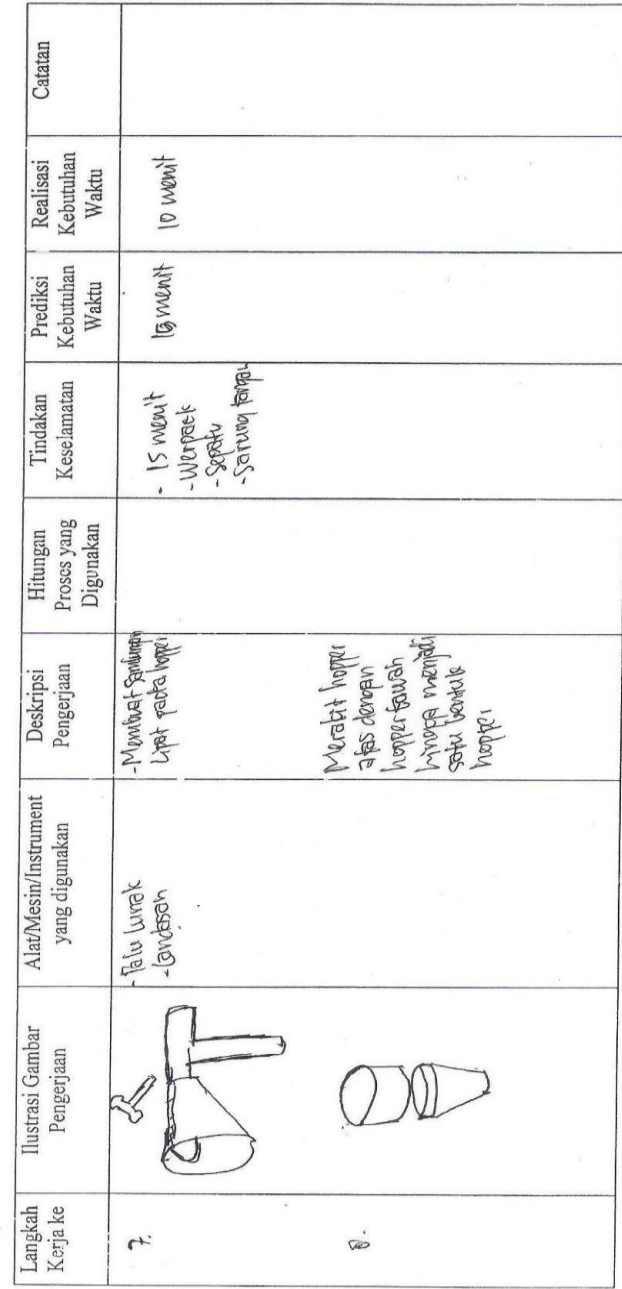 Langkah
Kerja ke
Ilustrasi Gambar
Pengerjaan
Alat/Mesin/Instrument
yang digunakan
Deskripsi
Pengerjaan
Hitungan
Proses yang
Digunakan
Tindakan
Keselamatan
Prediksi
Kebutuhan
Waktu
Realisasi
Kebutuhan
Waktu
Catatan
7.
- Palu lunak
- Landasan
- Membuat sambungan
Lipat pada hopper
- 15 menit
- Werpack
- Sepatu
- Sarung tangan
15 menit
10 menit
8.
Merakit hopper
atas dengan
hopper bawah
hingga menjadi
satu bentuk
hopper